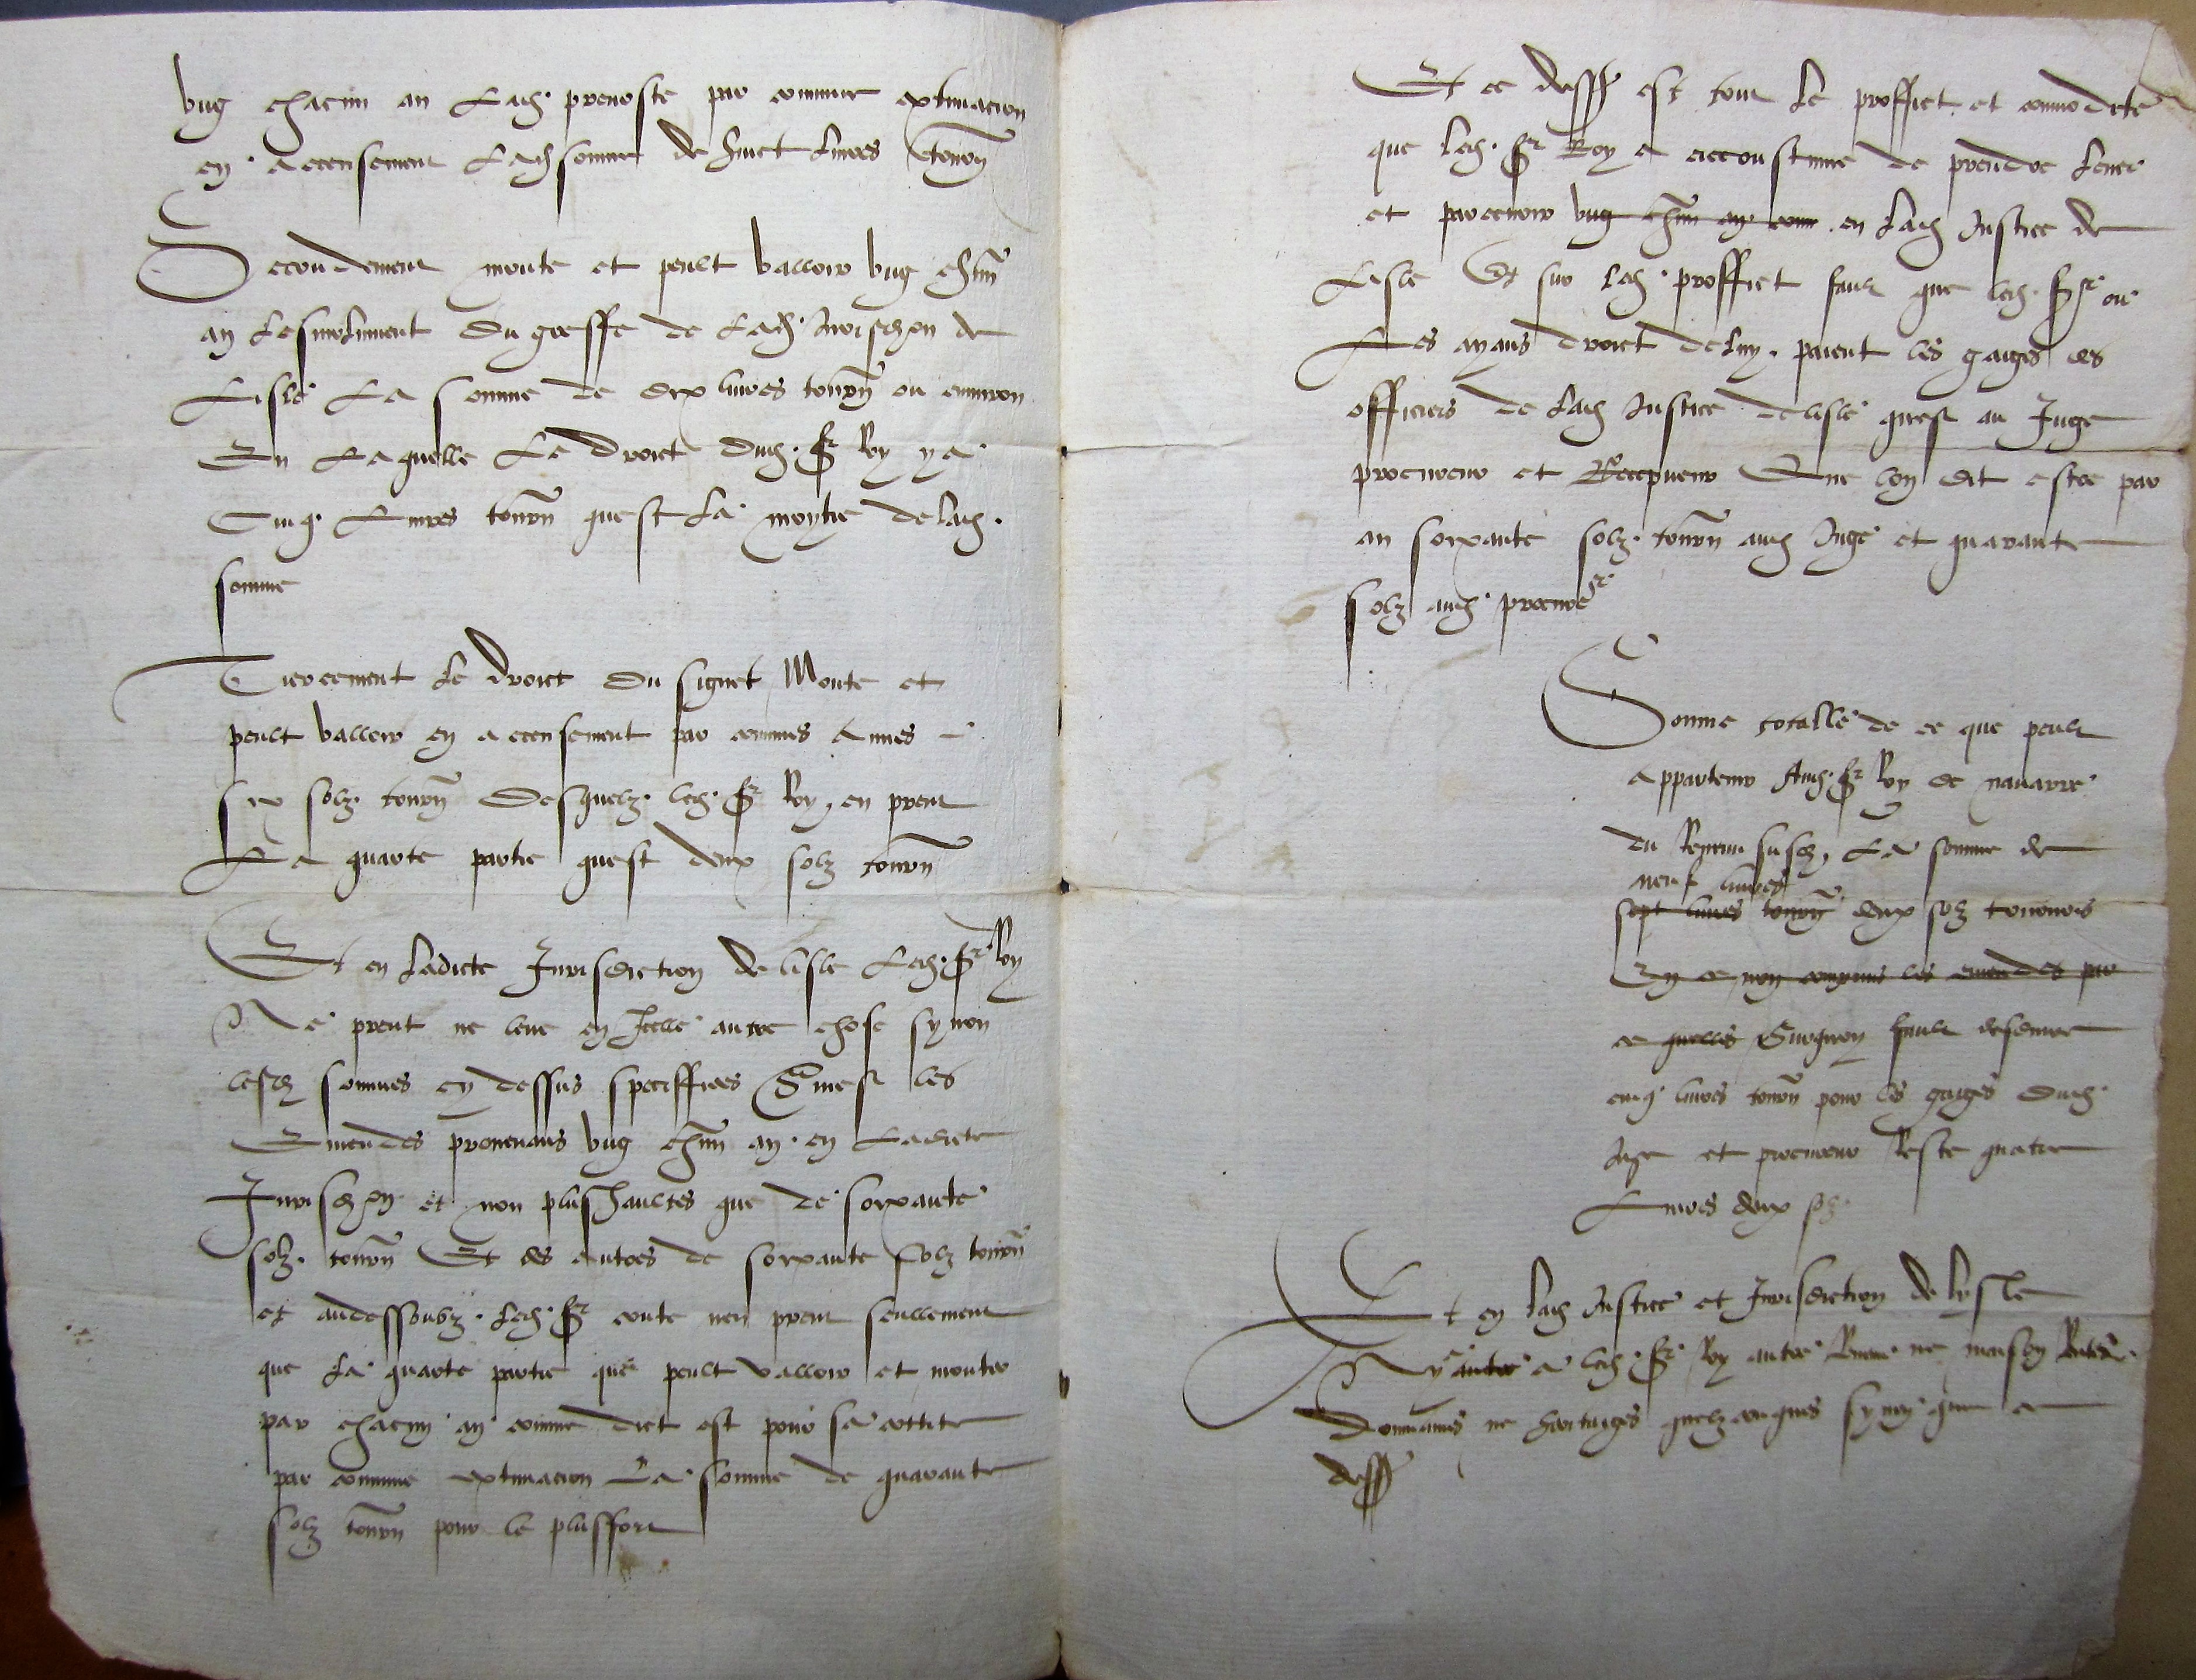 vng chacun an Lad. preuoste par commune extimacion
en accensement Lad somme de huict Liures tourn
Secondement monte et peult valloir vng chun
an Lesmolument du greffe de Lad. Jurisdon de
Lisle La somme de dix liures tourn ou enuiron
En Laquelle Le droict dud. Sr Roy y a
Cinq Liures tourn quest La moytie de lad.
somme
Tiercement Le droict du signet Monte et
peult valloir en accensement par commes annes
solz tourn Desquelz led. Sr Roy, en prent
La quarte partie quest deux solz tourn
Et en Ladicte Jurisdiction de lisle Led. Sr Roy
Ne prent ne leue en Icelle autre chose synon
lesd sommes cy dessus speciffiees les
Emendes prouenans vng chun an en Ladicte
Jurisdon et non plushaultes que de soixante
solz tourn Et des autres de soixante solz tourn
et audessoubz. Led. Sr conte nen prent seullement
que La quarte partie que peult valloir et monter
par chacun an comme dict est pour sa cottite
par commune extimacion La somme de quarante
solz tourn pour le plusfort
Et ce dess est tout Le proffict et commodite
que Led. Sr Roy a accoustume de prendre Leuer
et parceuoir vng chun an en Lad Justice de
Lisle Et sur Led. proffict fault que led. Sr ou
Les ayans droict de luy. paient les gaiges des
officiers de Lad Justice delisle quest au Juge
procureur et Recepueur Que lon dit estre par
an soixante solz. tourn aud Juge et quarante
solz aud. procurer
Somme totalle de ce que peult
appartenir Aud. Sr Roy de nauarre
du Reuenu susd, La somme de
neuf liures
sept liures tourn deux solz tournois
En ce non comprins les emendes par
ce quelles fault desduire
cinq liures tourn pour les gaiges dud.
Juge et procureur Reste quatre
Liures deux solz
Et en Lad Justice et Jurisdiction de lysle
Ny autre a led. Sr Roy autre ne maison
Dommaines ne heritaiges quelzconques synon que ce
dess